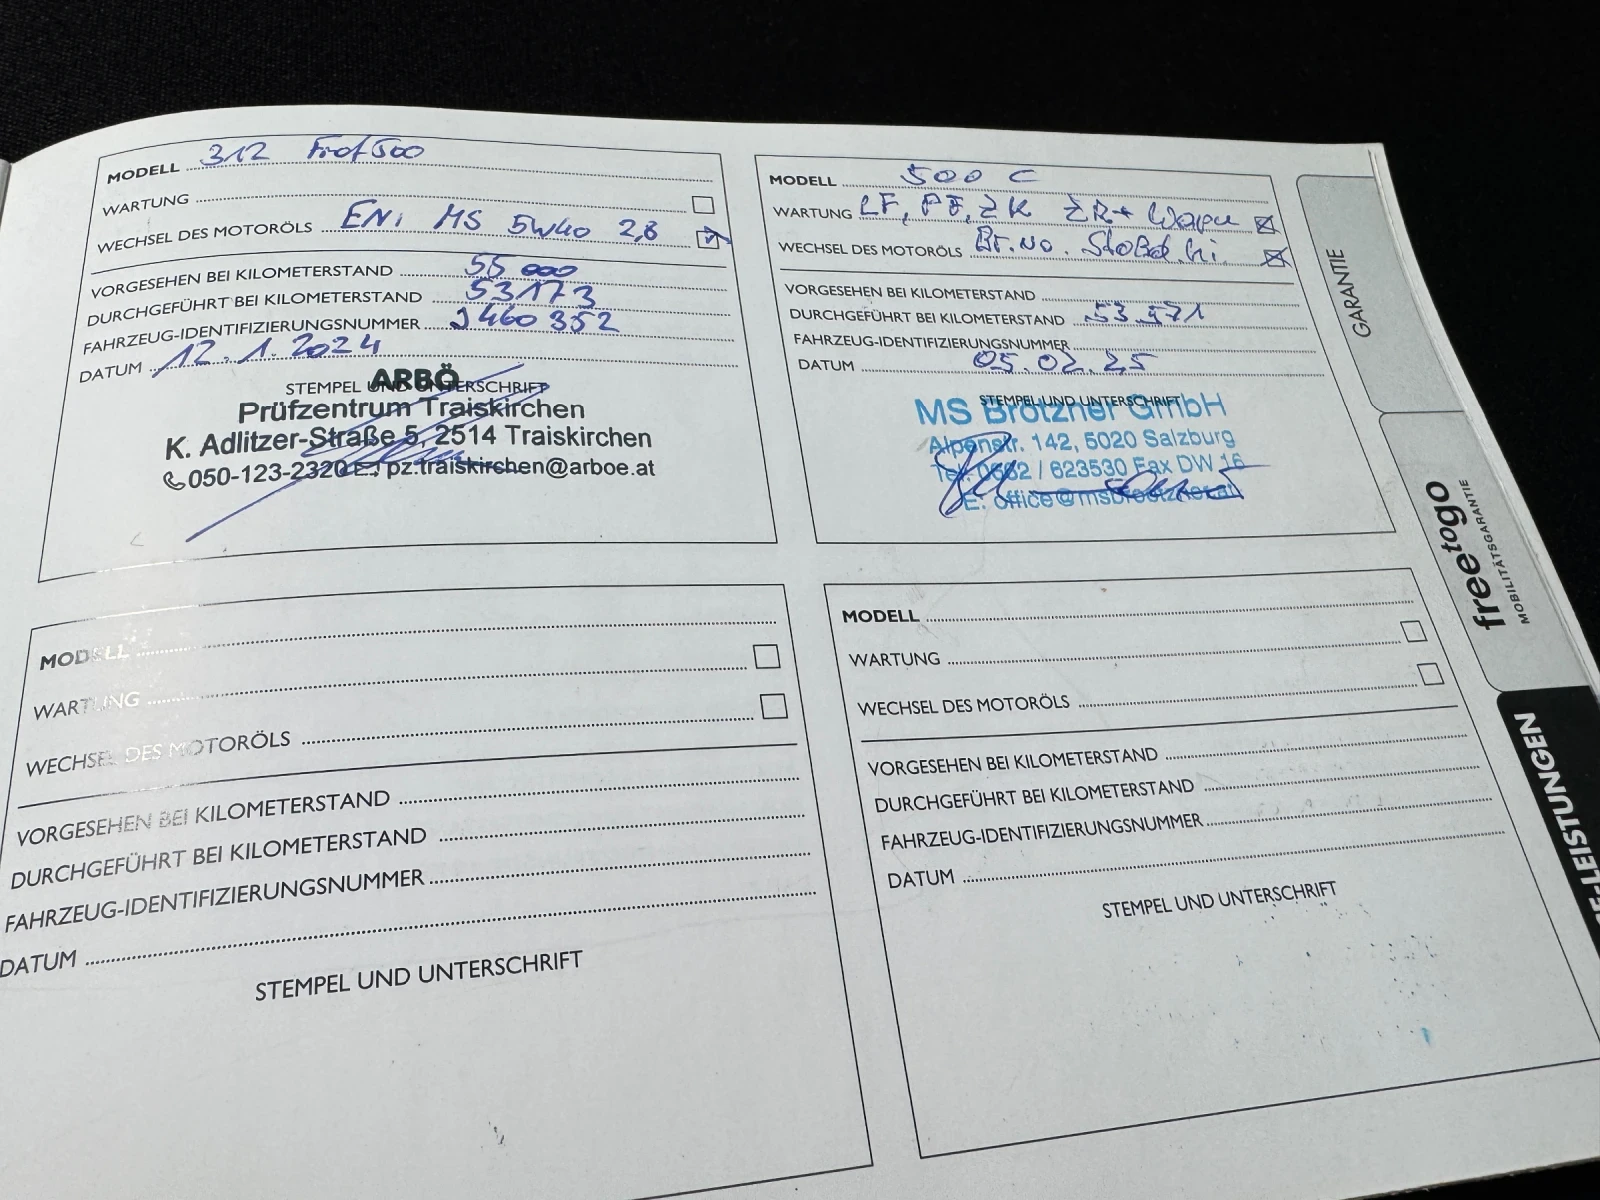 MODELL 312 Fiat 500
WARTUNG
WECHSEL DES MOTORÖLS ENi MS 5W40 2,8
VORGESEHEN BEI KILOMETERSTAND 55 000
DURCHGEFÜHRT BEI KILOMETERSTAND 53173
FAHRZEUG-IDENTIFIZIERUNGSNUMMER J460352
DATUM 12.1.2024
STEMPEL UND UNTERSCHRIFT
ARBÖ
Prüfzentrum Traiskirchen
K. Adlitzer-Straße 5, 2514 Traiskirchen
050-123-2320 pz.traiskirchen@arboe.at
MODELL 500 C
WARTUNG LF, PF, ZK ZR+
WECHSEL DES MOTORÖLS
VORGESEHEN BEI KILOMETERSTAND
DURCHGEFÜHRT BEI KILOMETERSTAND
FAHRZEUG-IDENTIFIZIERUNGSNUMMER
DATUM 05.02.25
STEMPEL UND UNTERSCHRIFT
MS Brötzner GmbH
Alpenstr. 142, 5020 Salzburg
Tel. 0662 / 623530 Fax DW 16
E: office@msbroetzner.at
MODELL
WARTUNG
WECHSEL DES MOTORÖLS
VORGESEHEN BEI KILOMETERSTAND
DURCHGEFÜHRT BEI KILOMETERSTAND
FAHRZEUG-IDENTIFIZIERUNGSNUMMER
DATUM
STEMPEL UND UNTERSCHRIFT
MODELL
WARTUNG
WECHSEL DES MOTORÖLS
VORGESEHEN BEI KILOMETERSTAND
DURCHGEFÜHRT BEI KILOMETERSTAND
FAHRZEUG-IDENTIFIZIERUNGSNUMMER
DATUM
STEMPEL UND UNTERSCHRIFT
GARANTIE
freetogo
MOBILITÄTSGARANTIE